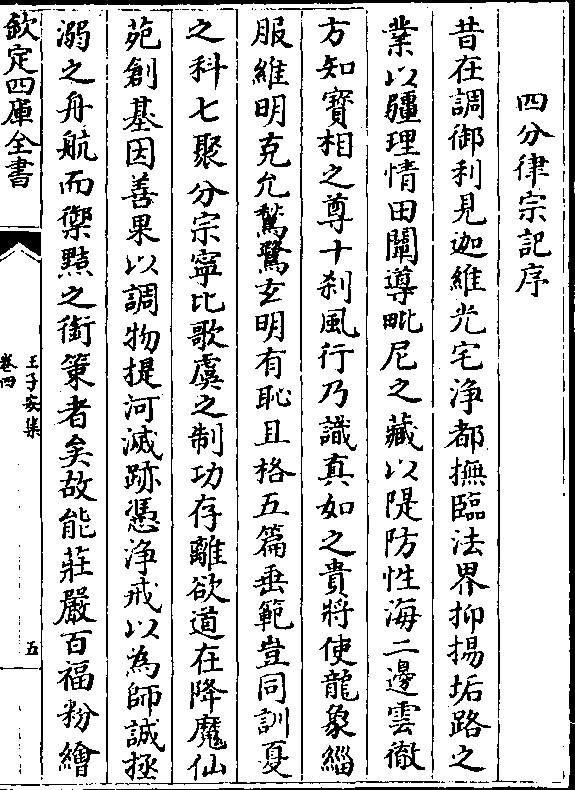 四分律宗記序
昔在調御利見迦維光宅浄都撫臨法界抑揚垢路之
業以疆理情田闡導毗尼之藏以隄防性海二邊雲徹
方知寳相之尊十刹風行乃識真如之貴將使龍象緇
服維明克允鶖鷺玄明有恥且格五篇垂範豈同訓夏
之科七聚分宗寧比歌虞之制功存離欲道在降魔仙
苑創基因善果以調物提河滅跡憑浄戒以為師誠拯
溺之舟航而禦黠之銜策者矣故能莊嚴百福粉繪
欽定四庫全書
王子安集
卷四
五